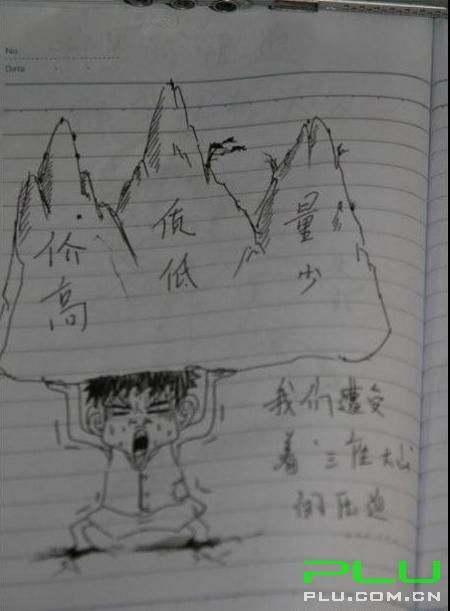 No.
Date
价高
质低
量少
我们遭受
着"三座大山"
的压迫
PLU
PLU.COM.CN